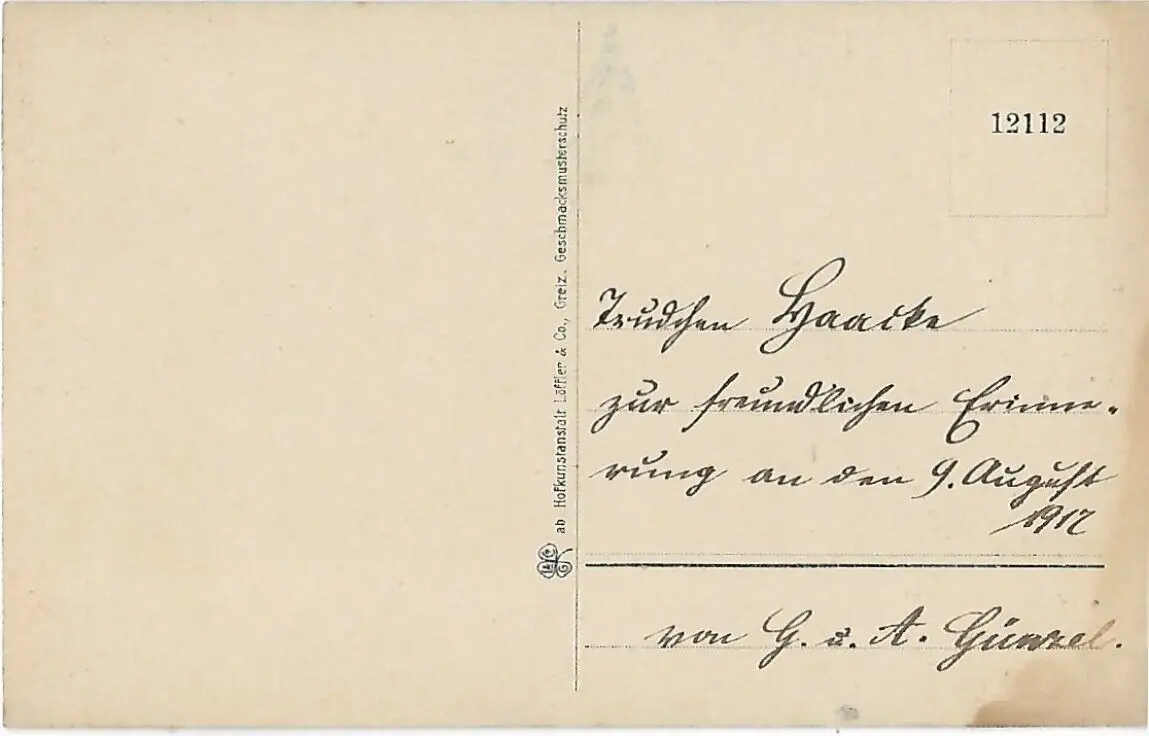 12112
ab Hofkunstanstalt Löffler & Co., Greiz. Geschmacksmusterschutz
Trudchen Haacke
zur freundlichen Erinne-
rung an den 9. August
1917
von G. u. A.